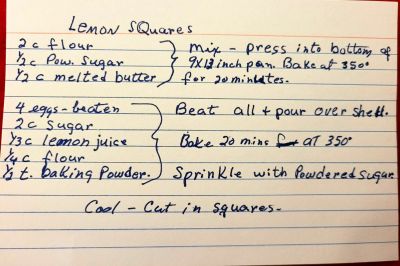 LEMON SQuares
2 c flour
1/2 c Pow. Sugar
1/2 c melted butter
Mix - press into bottom of
9X13 inch pan. Bake at 350°
for 20 minutes.
4 eggs - beaten
2 c sugar
1/3 c lemon juice
1/4 c flour
1/2 t. baking Powder.
Beat all + pour over shell.
Bake 20 mins AT 350°
Sprinkle with Powdered Sugar
Cool - Cut in squares -